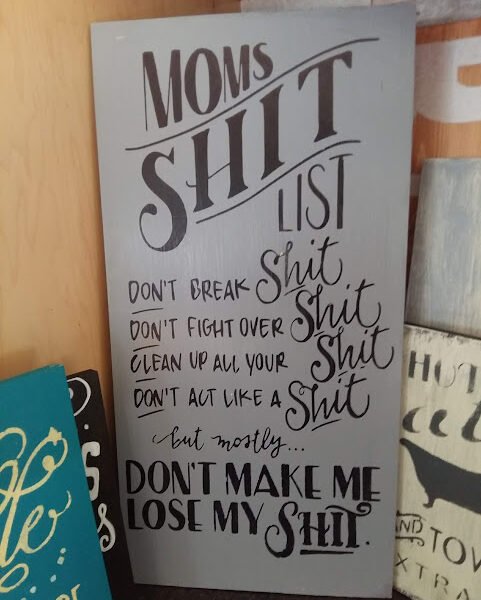 MOMS
SHIT
LIST
DON'T BREAK Shit
DON'T FIGHT OVER Shit
CLEAN UP ALL YOUR Shit
DON'T ACT LIKE A Shit
but mostly...
DON'T MAKE ME
LOSE MY SHIT.
HOT
AND TOW
XTRA